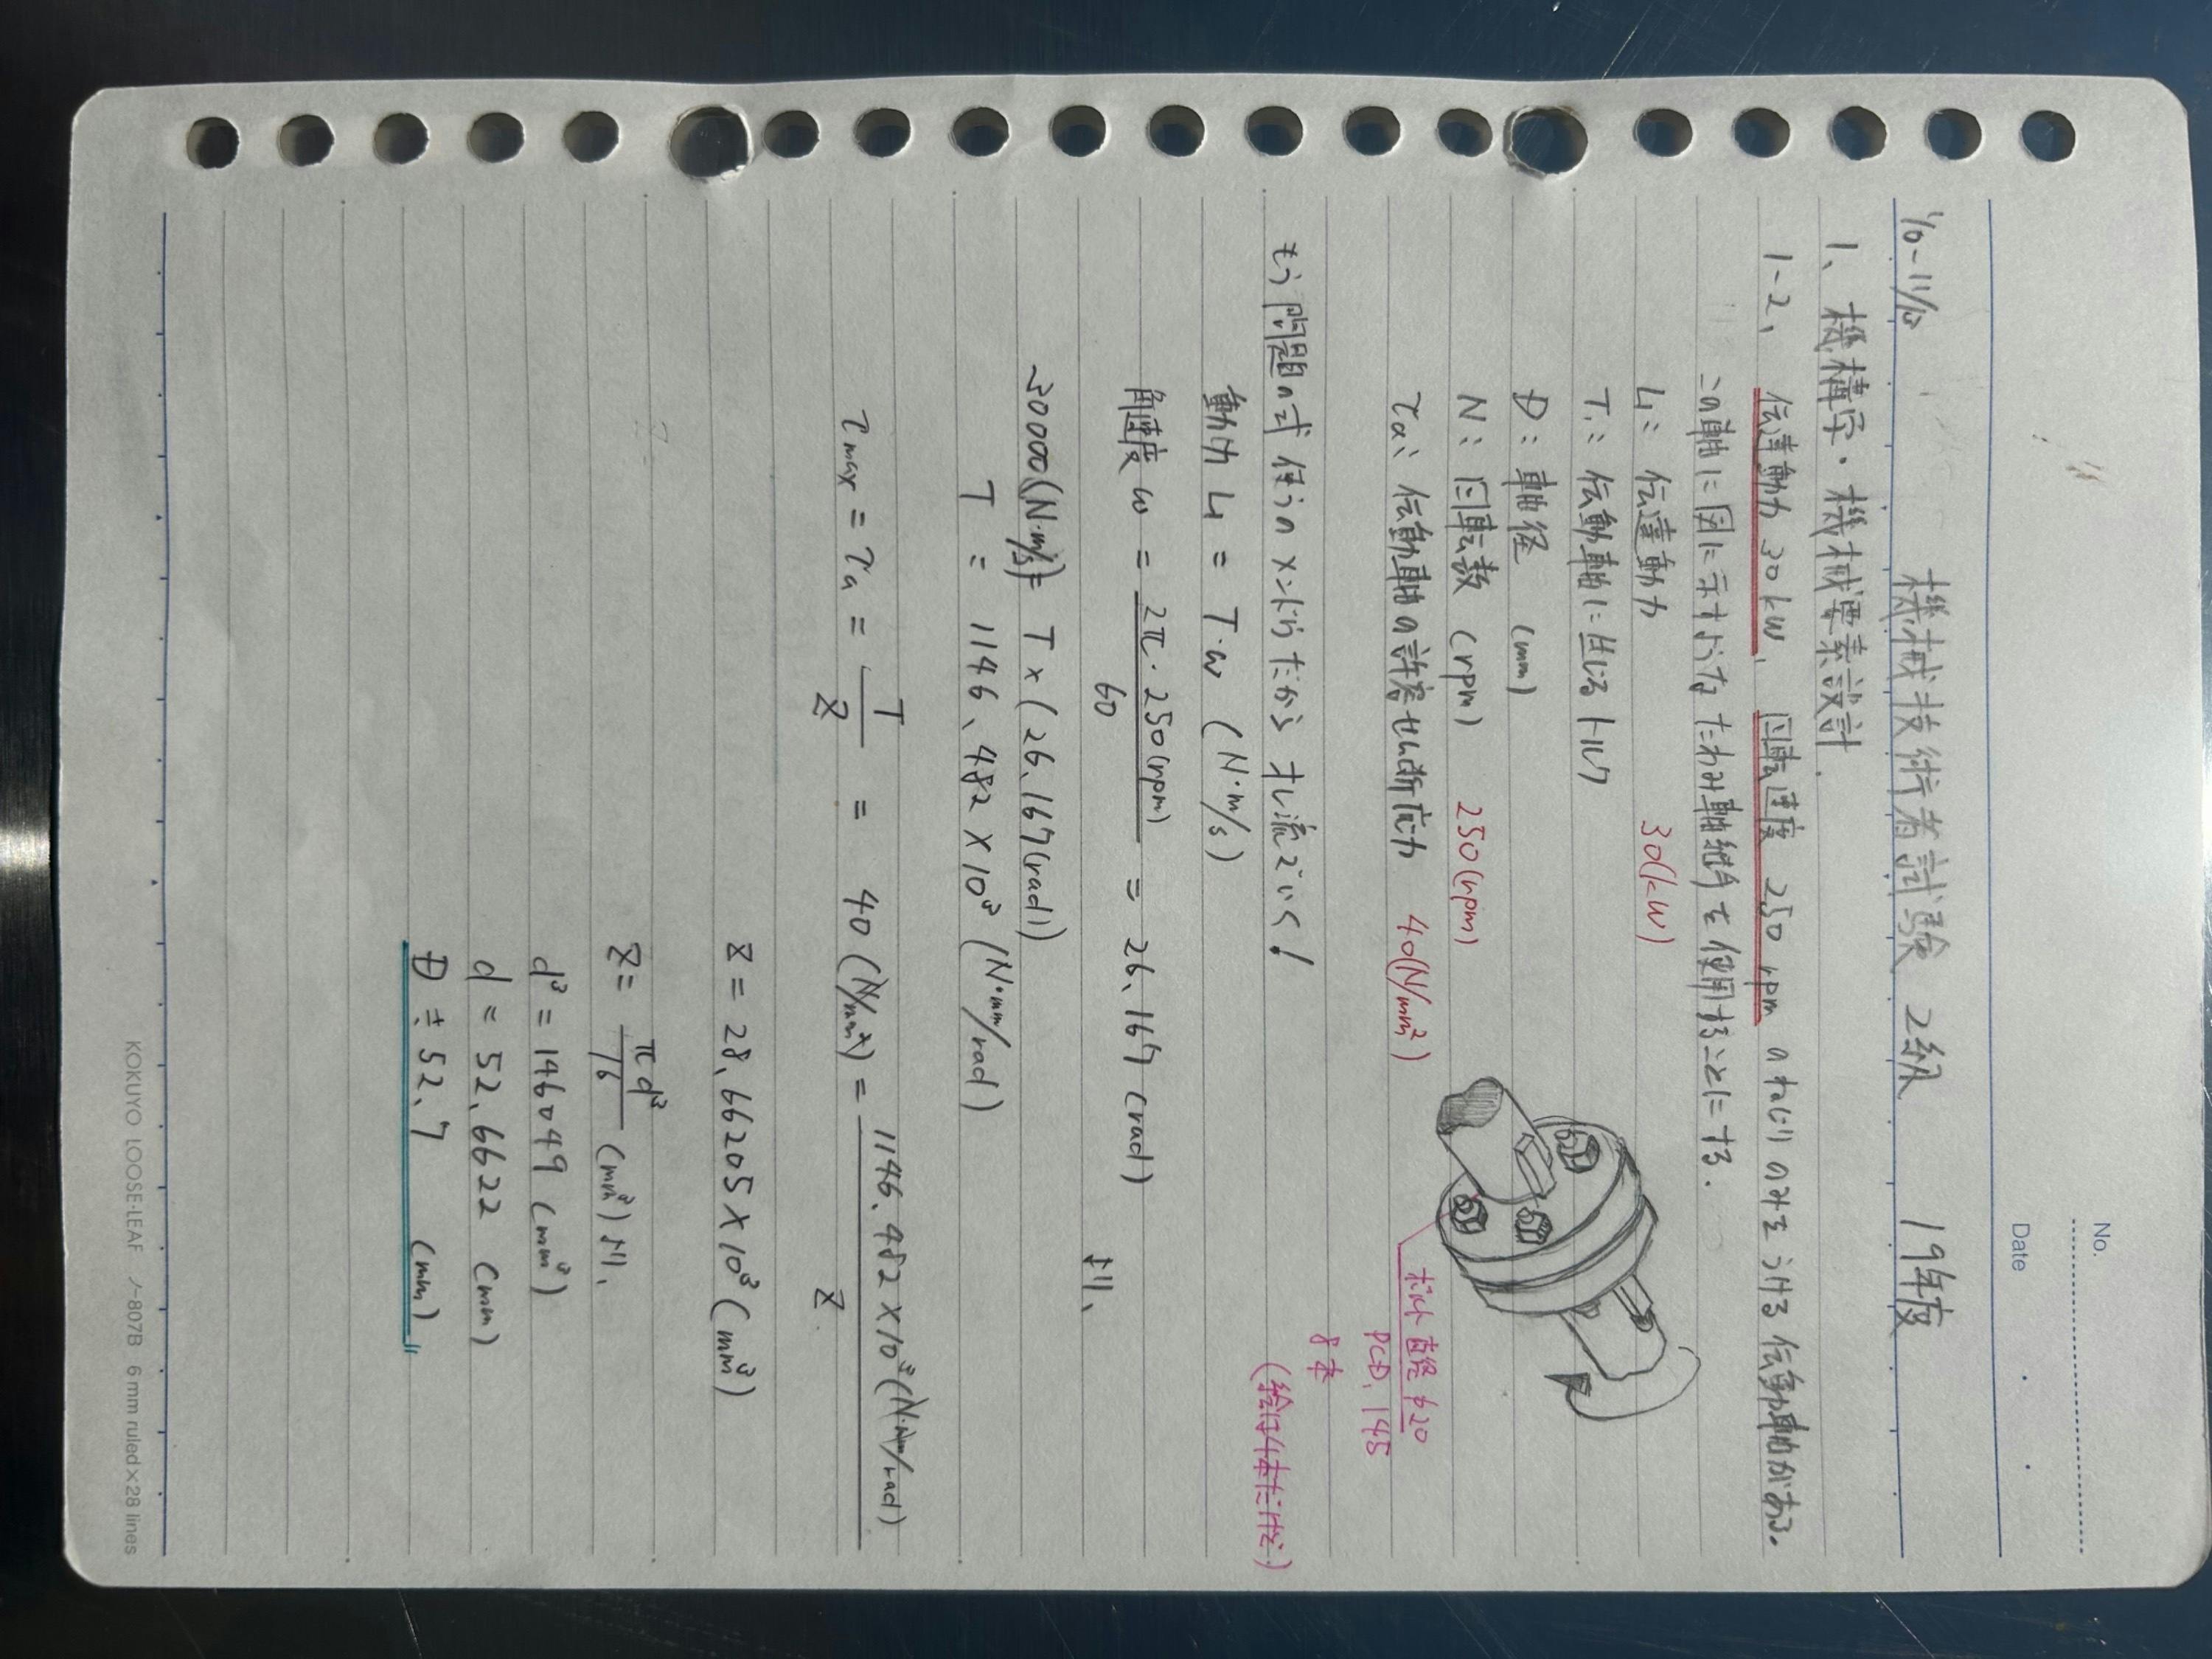 No.
Date
10-11/10 機械設計技術者試験 2級 19年度
1、機構学・機械要素設計.
1-2, 伝達動力 30kW, 回転速度 250 rpm のねじりのみをうける伝動軸がある.
この軸に図に示すようなたわみ軸継手を使用することにする.
L: 伝達動力 30(kW)
T: 伝動軸に生じるトルク
D: 軸径 (mm)
N: 回転数 (rpm) 250(rpm)
τa: 伝動軸の許容せん断応力 40(N/mm²)
ボルト直径 φ20
PCD. 145
8本
(絵は4本だけど.)
もう問題の式 使うの メンドウだから オレ流でいく!
動力 L = T・ω (N・m/s)
角速度 ω = 2π・250(rpm)/60 = 26.167 (rad)
より、
30000(N・m/s) = T × (26.167(rad))
T = 1146.482 × 10³ (N・mm/rad)
τmax = τa = T/Z = 40 (N/mm²) = 1146.482 × 10³ (N・mm/rad)/Z
Z = 28.66205 × 10³ (mm³)
Z = πd³/16 (mm³) より、
d³ = 146049 (mm³)
d = 52.6622 (mm)
D ≒ 52.7 (mm)
KOKUYO LOOSE-LEAF ノ-807B 6 mm ruled×28 lines